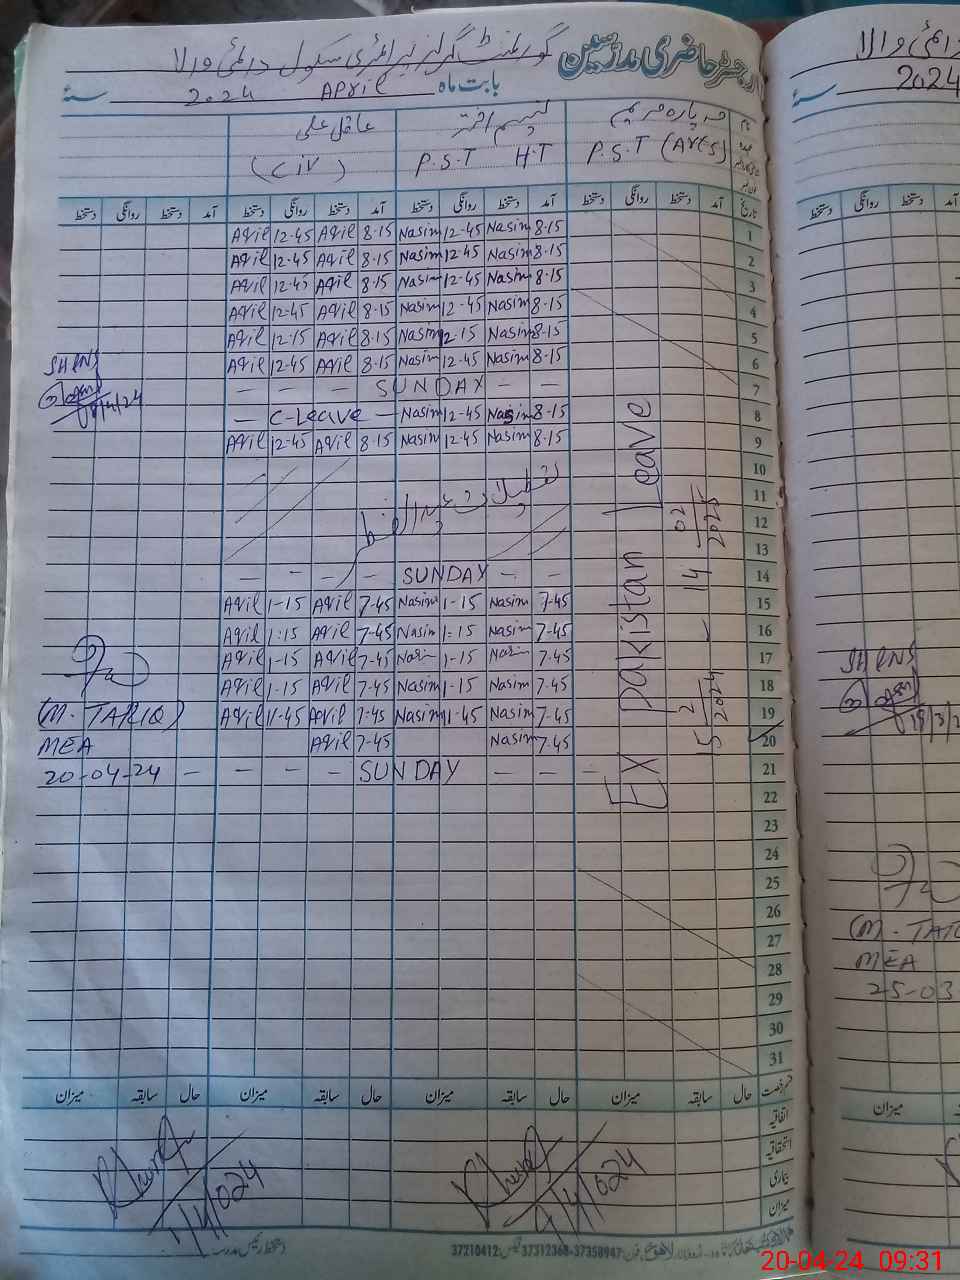 رجسٹر حاضری مدرسین گورنمنٹ گرلز پرائمری سکول دائمی والا
بابت ماہ April 2024 سنہ
مہ پارہ مریم نسیم اختر عاقل علی
P.S.T (Aces) P.S.T H.T (Civ)
تاریخ آمد دستخط روانگی دستخط آمد دستخط روانگی دستخط آمد دستخط روانگی دستخط آمد دستخط روانگی دستخط
1 8-15 Nasim 12-45 Nasim 8-15 Aqil 12-45 Aqil
2 8-15 Nasim 12-45 Nasim 8-15 Aqil 12-45 Aqil
3 8-15 Nasim 12-45 Nasim 8-15 Aqil 12-45 Aqil
4 8-15 Nasim 12-45 Nasim 8-15 Aqil 12-45 Aqil
5 8-15 Nasim 12-15 Nasim 8-15 Aqil 12-15 Aqil
6 8-15 Nasim 12-45 Nasim 8-15 Aqil 12-45 Aqil
7 — — SUNDAY — —
8 8-15 Nasim 12-45 Nasim — C-Leave —
9 8-15 Nasim 12-45 Nasim 8-15 Aqil 12-45 Aqil
10
11
تعطیلات عید الفطر
12
13
14 — — SUNDAY — — — —
15 7-45 Nasim 1-15 Nasim 7-45 Aqil 1-15 Aqil
16 7-45 Nasim 1-15 Nasim 7-45 Aqil 1:15 Aqil
17 7-45 Nasim 1-15 Nasim 7-45 Aqil 1-15 Aqil
18 7-45 Nasim 1-15 Nasim 7-45 Aqil 1-15 Aqil
19 7-45 Nasim 11-45 Nasim 7-45 Aqil 11-45 Aqil
20 7-45 Nasim 7-45 Aqil
21 — — — SUNDAY — — — —
22
23
24
25
26
27
28
29
30
31
EX Pakistan Leave
15/2/2024 — 14/02/2025
SHRNS
/4/24
(M. TARIQ)
MEA
20-04-24
قسم رخصت حال سابقہ میزان حال سابقہ میزان حال سابقہ میزان حال سابقہ میزان
اتفاقیہ
استحقاقیہ
بیماری
میزان
1/4/024
دستخط رئیس مدرسہ
لاہور فون: 37358947-37312368 فیکس: 37210412
دائمی والا
2024 سنہ
آمد دستخط روانگی دستخط
SHRNS
19/3/2
(M. TARIQ
MEA
25-03-
میزان
20-04-24 09:31